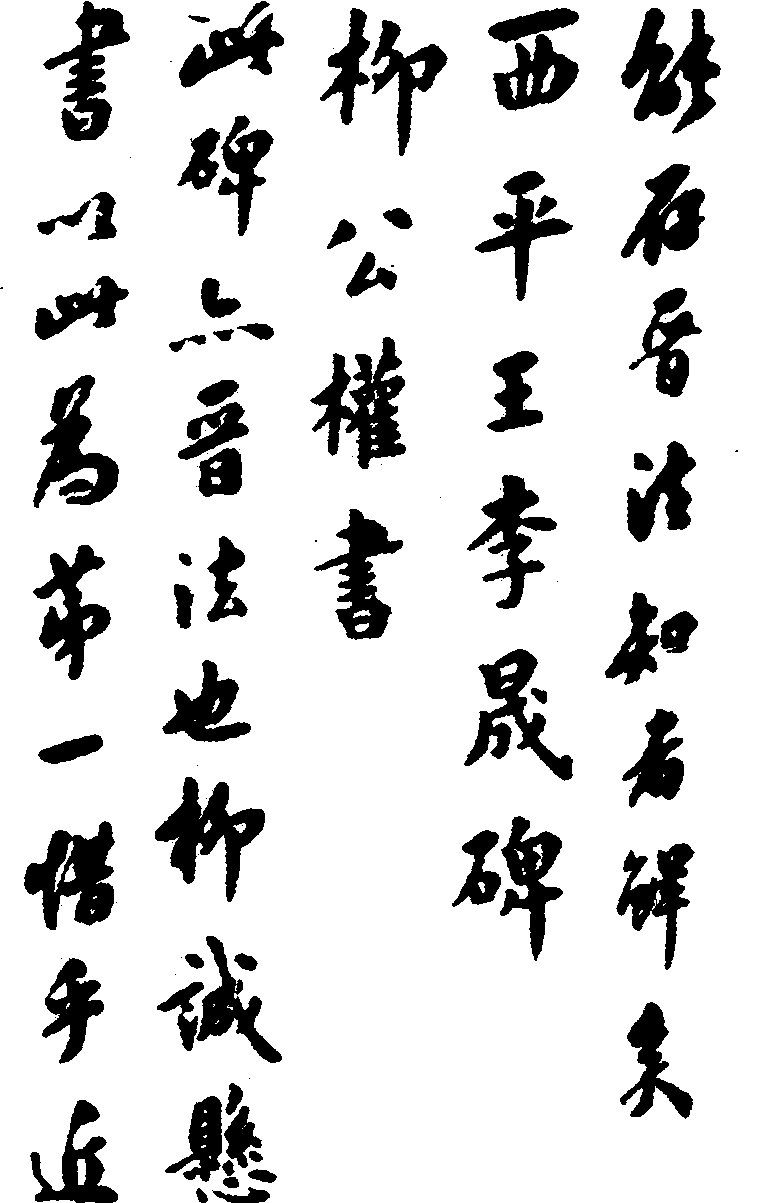 能存晉法知者鮮矣
西平王李晟碑
柳公權書
此碑亦晉法也柳誠懸
書以此為第一惜乎近